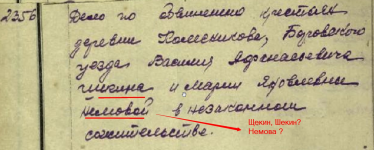 2356 Дело по обвинению крестьян
деревни Колесникова, Боровского
уезда Василия Афанасьевича
Щекина и Марии Яковлевны
Немовой в незаконном
сожительстве.
Щекин, Шекин?
Немова ?